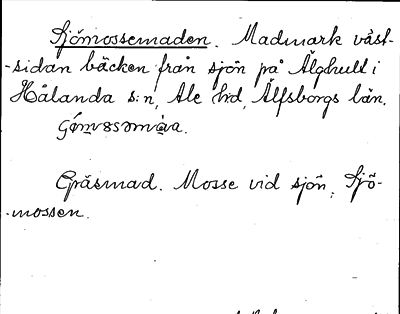 Sjömossemaden. Madmark väst-
-sidan bäcken från sjön på Älghult i
Hålanda s:n, Ale hd, Älfsborgs län.
Gräsmad. Mosse vid sjön, Sjö-
-mossen.